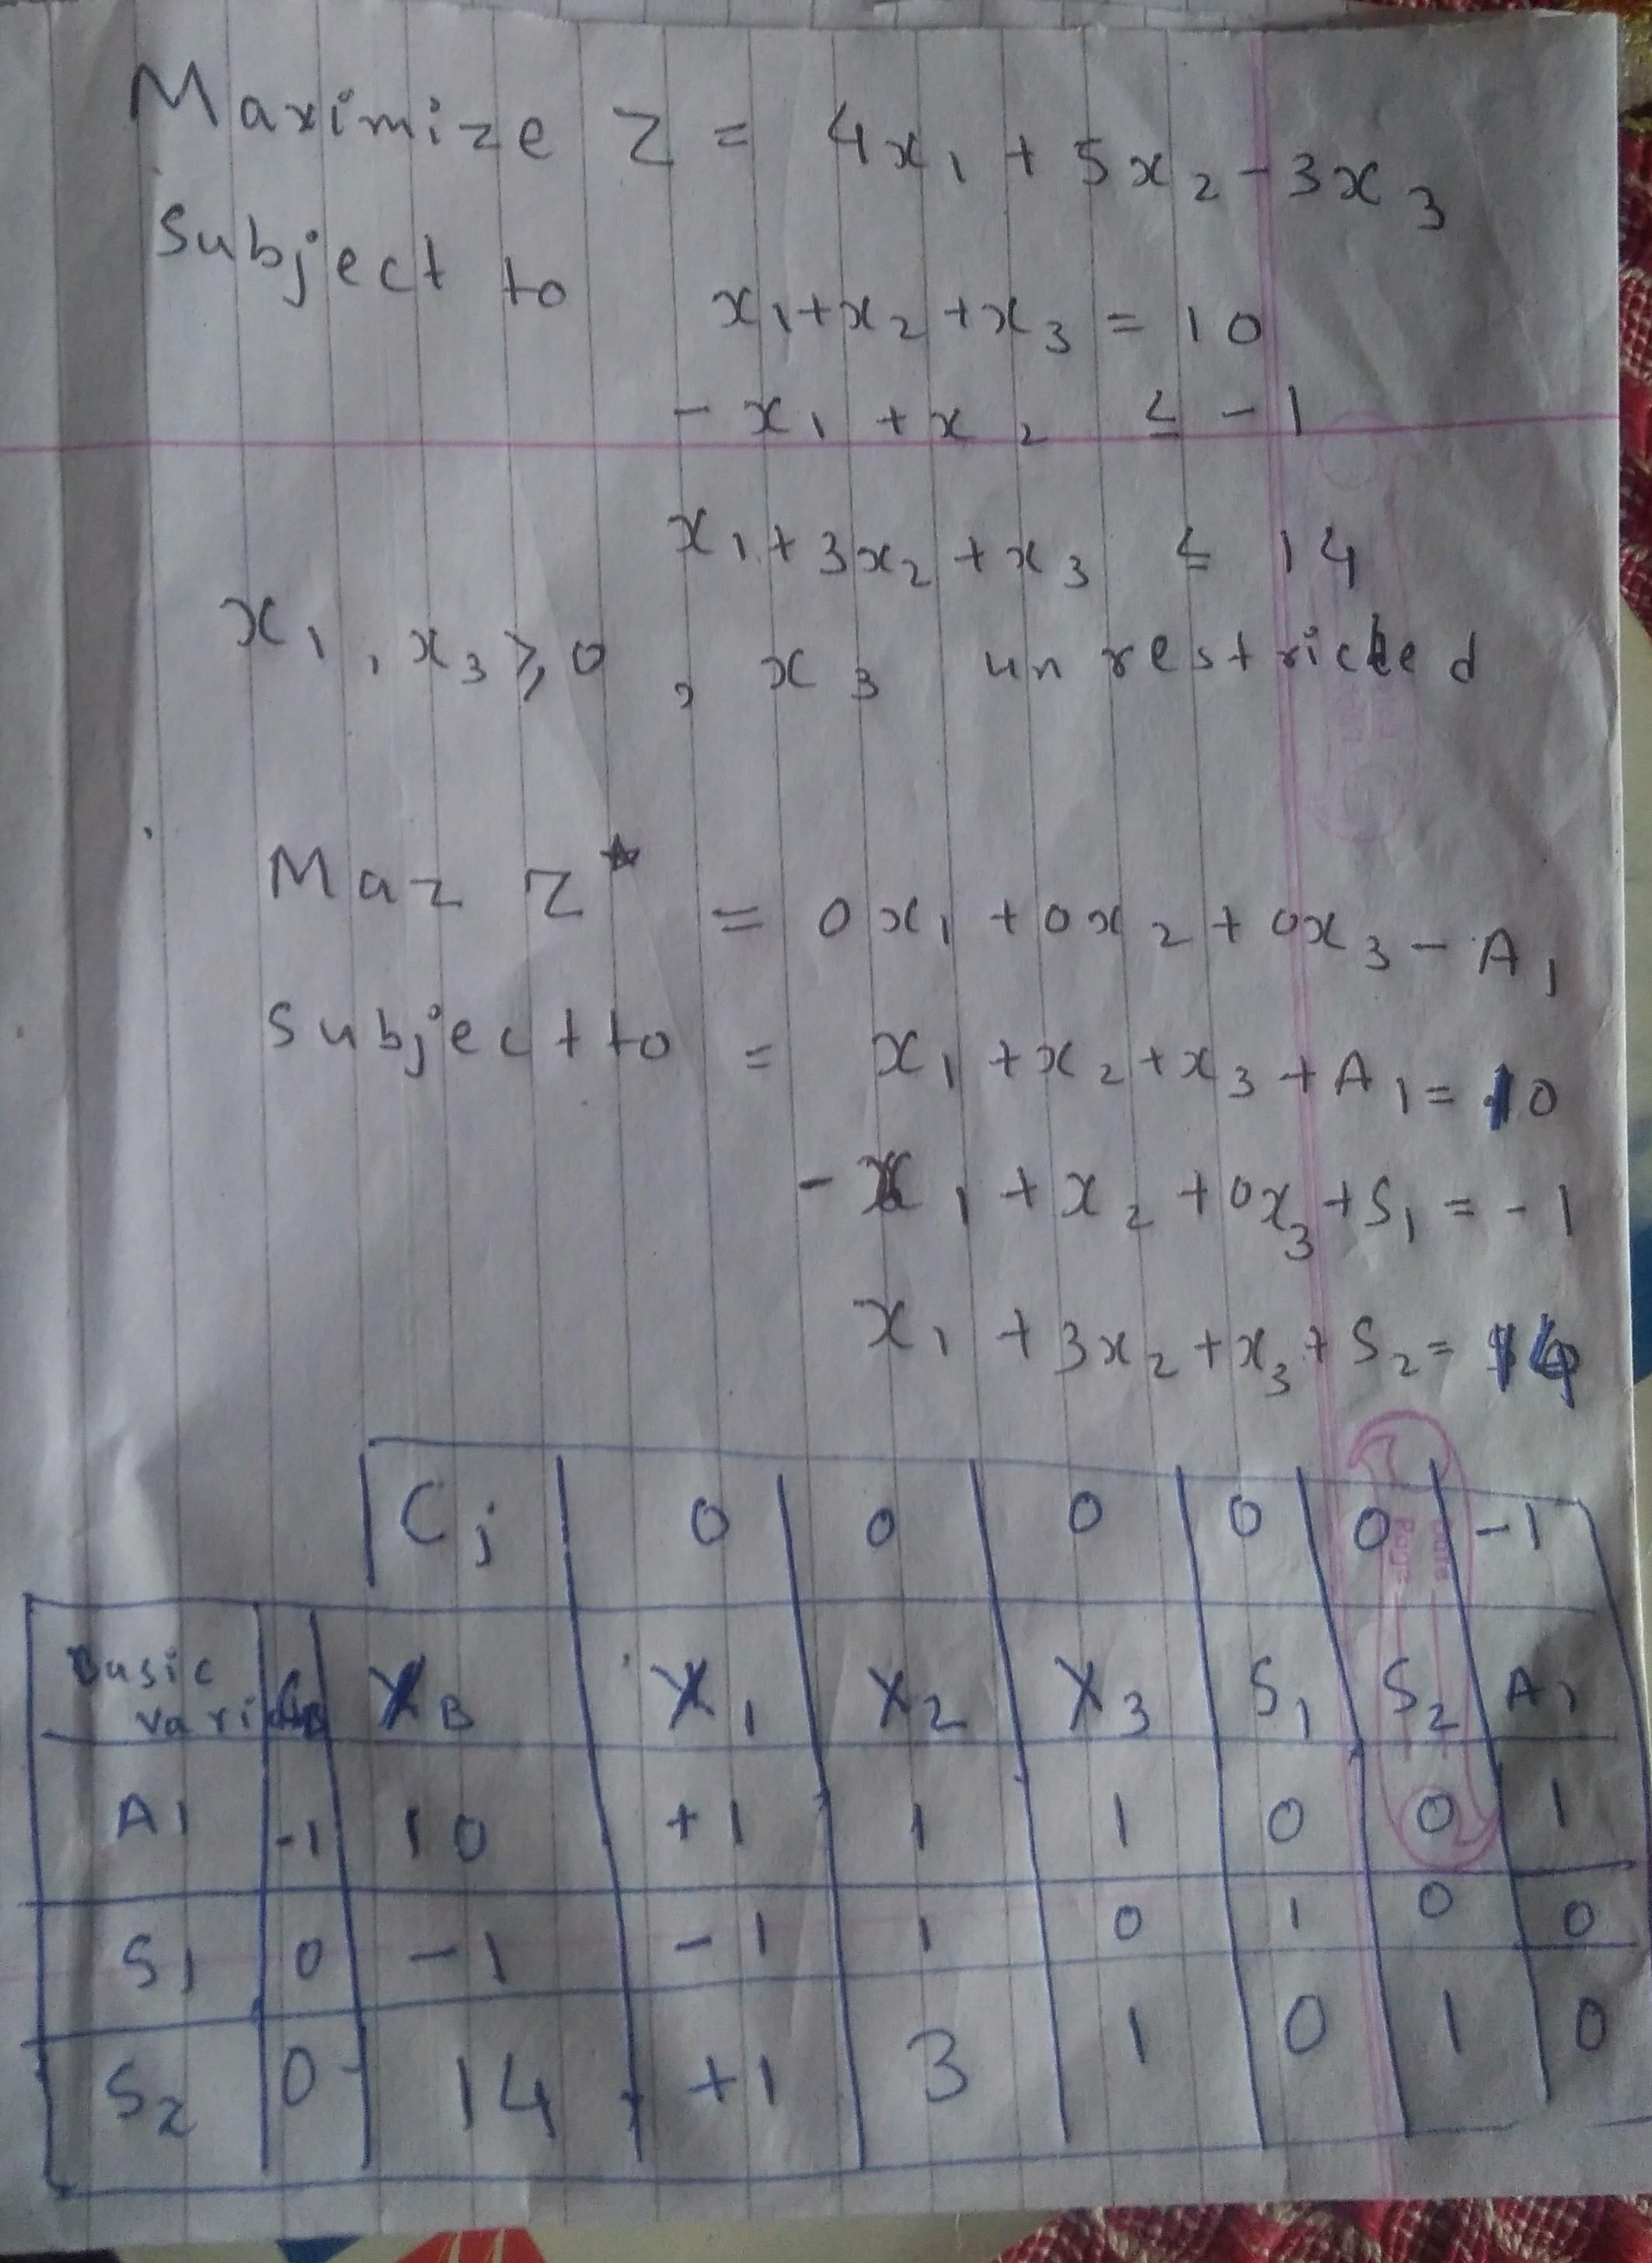 Maximize Z = 4x₁ + 5x₂ - 3x₃
Subject to
x₁+x₂+x₃ = 10
-x₁ + x₂ ≤ -1
x₁ + 3x₂ + x₃ ≤ 14
x₁, x₃ ≥ 0, x₃ unrestricted
Maz Z* = 0x₁ + 0x₂ + 0x₃ - A₁
Subject to = x₁ + x₂ + x₃ + A₁ = 10
-x₁ + x₂ + 0x₃ + S₁ = -1
x₁ + 3x₂ + x₃ + S₂ = 14
Cj 0 0 0 0 0 -1
Basic vari CB XB X₁ X₂ X₃ S₁ S₂ A₁
A₁ -1 10 +1 1 1 0 0 1
S₁ 0 -1 -1 1 0 1 0 0
S₂ 0 14 +1 3 1 0 1 0
Date
Page